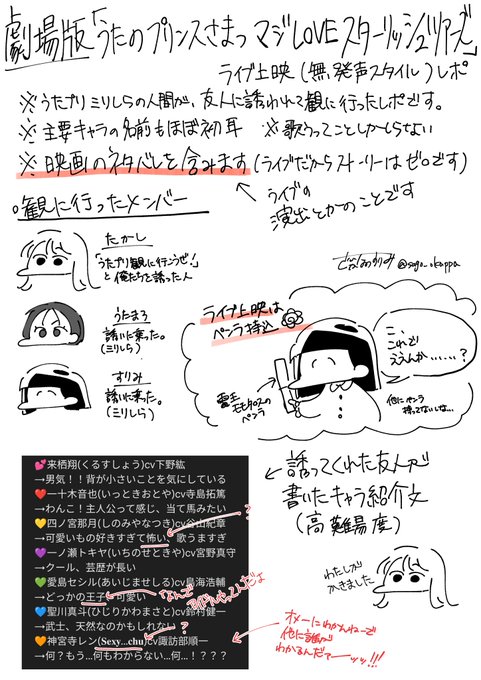 劇場版「うたのプリンスさまっ マジLOVEスターリッシュツアーズ」
ライブ上映(無発声スタイル)レポ
※うたプリミリしらの人間が、友人に誘われて観に行ったレポです。
※主要キャラの名前もほぼ初耳 ※歌うってことしかしらない
※映画のネタバレを含みます(ライブだからストーリーはゼロです)
ライブの
演出とかのことです
○観に行ったメンバー
たかし
「うたプリ観に行こうぜ!」
と俺たちを誘った人
@sugo_okappa
うたまろ
誘いに乗った。
(ミリしら)
すりみ
誘いに乗った。
(ミリしら)
ライブ上映は
ペンラ持込
こ、
これで
ええんか……?
電王
モモタロスの
ペンラ
他にペンラ
持ってないしな…
💕来栖翔(くるすしょう)cv下野紘
→男気!!背が小さいことを気にしている
❤️一十木音也(いっときおとや)cv寺島拓篤
→わんこ!主人公って感じ、当て馬みたい
💛四ノ宮那月(しのみやなつき)cv谷山紀章
→可愛いもの好きすぎて怖い、歌うますぎ
?
💜一ノ瀬トキヤ(いちのせときや)cv宮野真守
→クール、芸歴が長い
💚愛島セシル(あいじませしる)cv鳥海浩輔
→どっかの王子、可愛い
なんで
💙聖川真斗(ひじりかわまさと)cv鈴村健一
→武士、天然なのかもしれない
?
🧡神宮寺レン(Sexy...chu)cv諏訪部順一
→何?もう...何もわからない...何...!???
←誘ってくれた友人が
書いたキャラ紹介文
(高難易度)
わたしが
かきました
オメーにわかんねーで
他に誰が
わかるんだァーッッ!!!